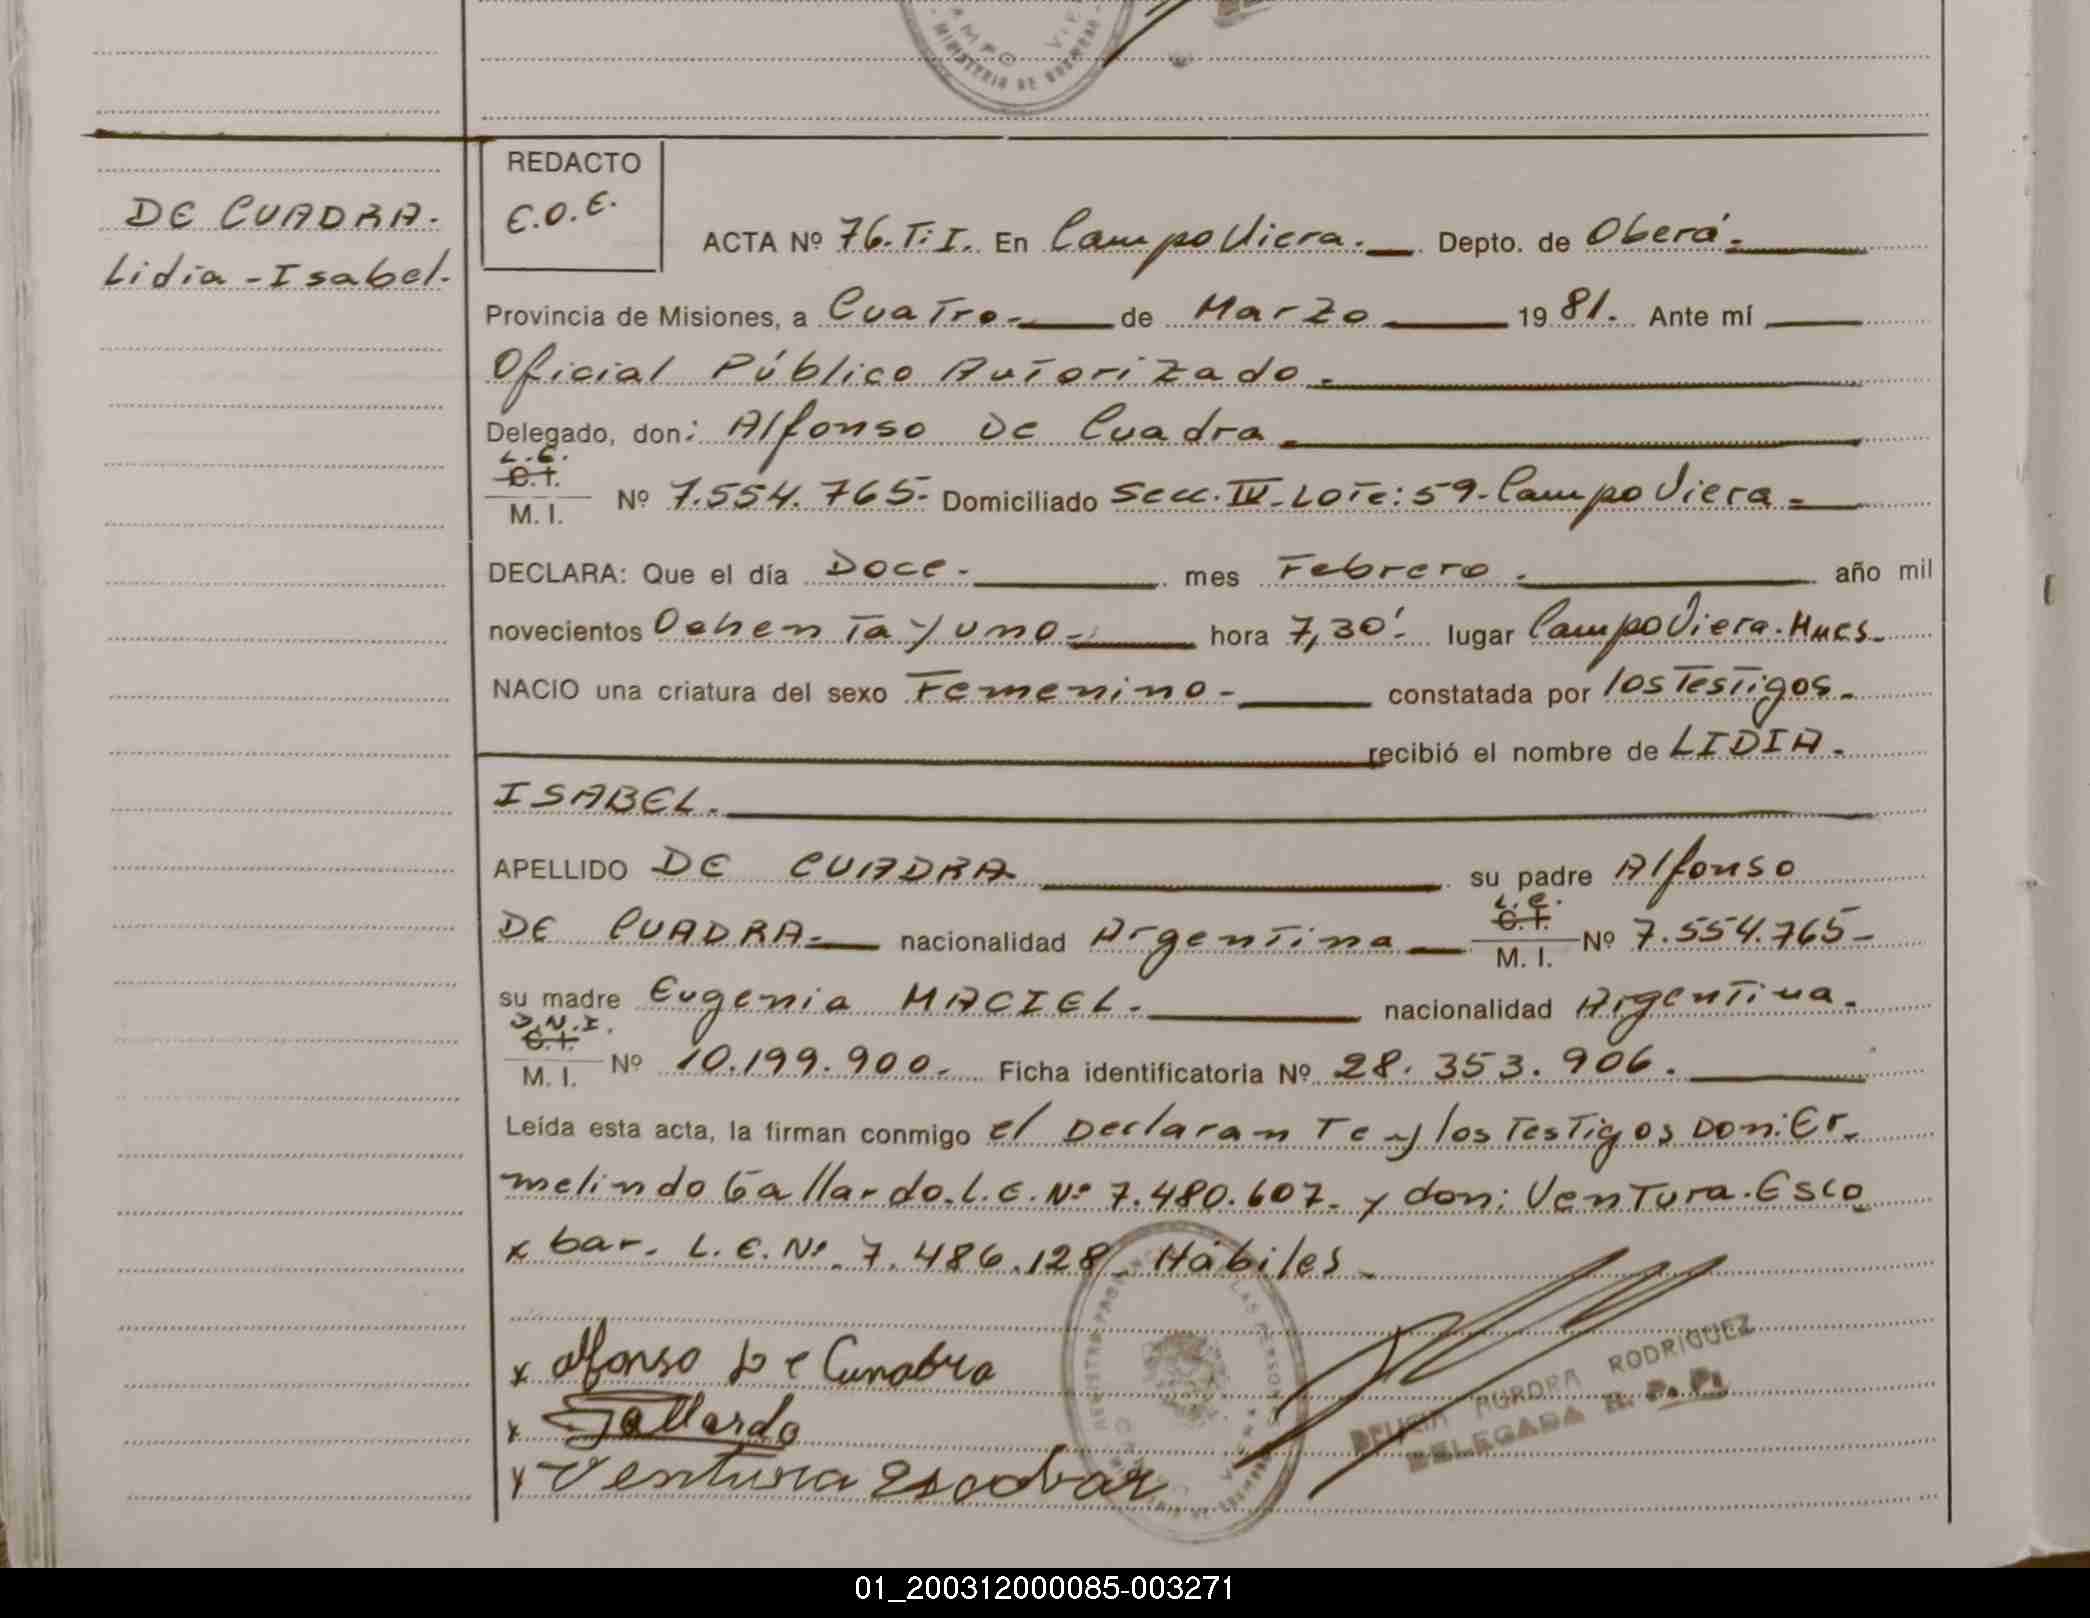 DE CUADRA.
Lidia - Isabel.
REDACTO
E.O.E.
ACTA Nº 76.T.I. En Campo Viera. Depto. de Oberá.
Provincia de Misiones, a Cuatro de Marzo 1981. Ante mí
Oficial Público Autorizado.
Delegado, don: Alfonso De Cuadra
L.E.
C.I.
M. I. Nº 7.554.765- Domiciliado Secc. IV- Lote: 59- Campo Viera.
DECLARA: Que el día Doce. mes Febrero. año mil
novecientos Ochenta y uno. hora 7,30'. lugar Campo Viera. Mnes.
NACIO una criatura del sexo Femenino- constatada por los Testigos.
recibió el nombre de LIDIA.
ISABEL.
APELLIDO DE CUADRA su padre Alfonso
L.E.
C.I.
DE CUADRA. nacionalidad Argentina M. I. Nº 7.554.765-
su madre Eugenia MACIEL. nacionalidad Argentina.
D.N.I.
C.I.
M. I. Nº 10.199.900. Ficha identificatoria Nº 28.353.906.
Leída esta acta, la firman conmigo el Declarante y los Testigos Don: Er-
melindo Gallardo. L.E. Nº 7.480.607. y don: Ventura. Esco
x bar. L.E. Nº 7.486.128. Hábiles.
x alfonso De Cuadra
x Gallardo
x Ventura Escobar
AURORA RODRIGUEZ
DELEGADA R. P. P.
01_200312000085-003271